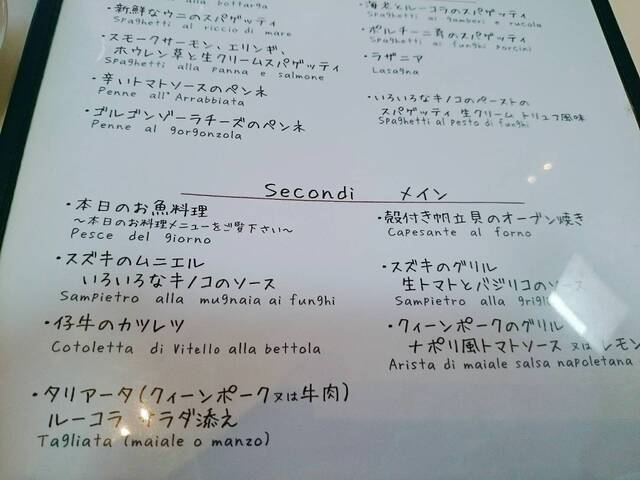 alla bottarga
・新鮮なウニのスパゲッティ
Spaghetti al riccio di mare
・スモークサーモン、エリンギ、
ホウレン草と生クリームスパゲッティ
Spaghetti alla panna e salmone
・辛いトマトソースのペンネ
Penne all'Arrabbiata
・ゴルゴンゾーラチーズのペンネ
Penne al gorgonzola
・海老とルーコラのスパゲッティ
Spaghetti ai gamberi e rucola
・ポルチーニ茸のスパゲッティ
Spaghetti ai funghi porcini
・ラザニア
Lasagna
・いろいろなキノコのペーストの
スパゲッティ 生クリーム トリュフ風味
Spaghetti al pesto di funghi
Secondi メイン
・本日のお魚料理
〜本日のお料理メニューをご覧下さい〜
Pesce del giorno
・スズキのムニエル
いろいろなキノコのソース
Sampietro alla mugnaia ai funghi
・仔牛のカツレツ
Cotoletta di Vitello alla bettola
・タリアータ(クィーンポーク又は牛肉)
ルーコラ サラダ添え
Tagliata (maiale o manzo)
・殻付き帆立貝のオーブン焼き
Capesante al forno
・スズキのグリル
生トマトとバジリコのソース
Sampietro alla
・クィーンポークのグリル
ナポリ風トマトソース 又は レモン
Arista di maiale salsa napoletana